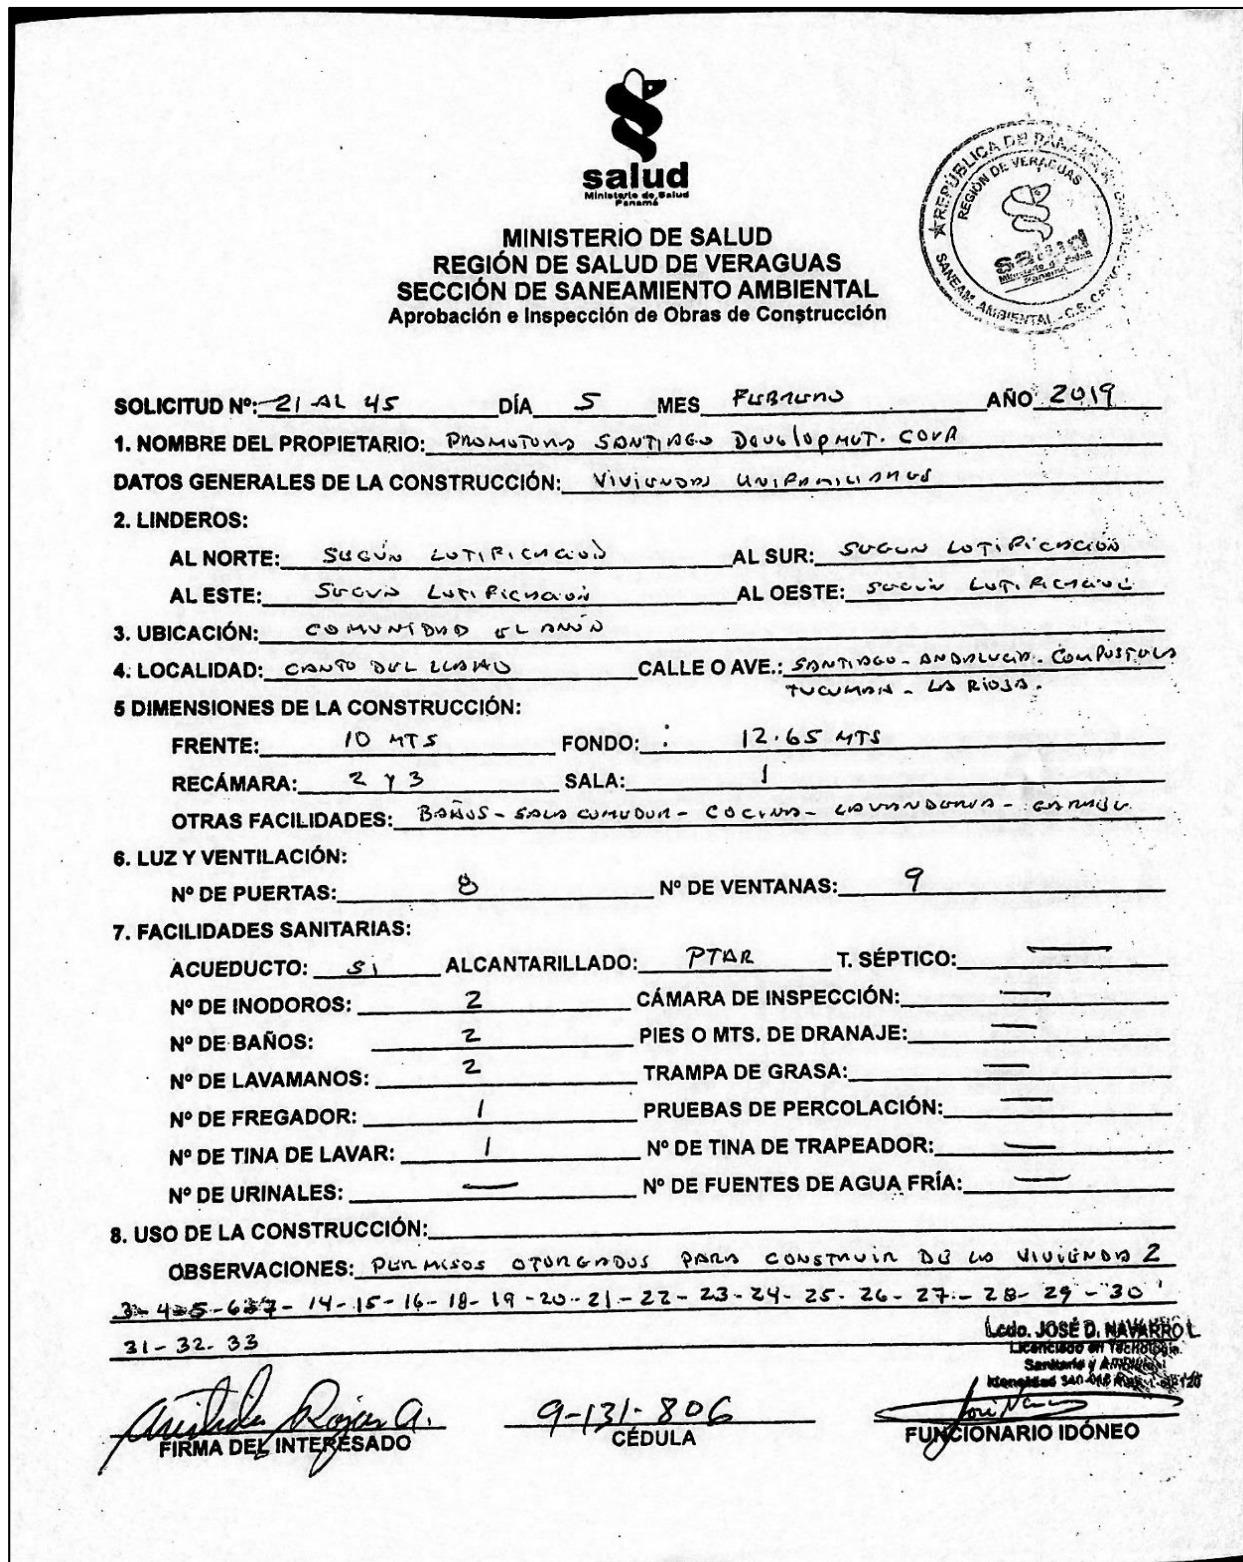 salud
Ministerio de Salud
Panamá
REPÚBLICA DE PANAMÁ
REGIÓN DE VERAGUAS
salud
Ministerio de Salud
Panamá
SANEAM. AMBIENTAL - C.S.
MINISTERIO DE SALUD
REGIÓN DE SALUD DE VERAGUAS
SECCIÓN DE SANEAMIENTO AMBIENTAL
Aprobación e Inspección de Obras de Construcción
SOLICITUD Nº: 21 AL 45 DÍA 5 MES FEBRERO AÑO 2019
1. NOMBRE DEL PROPIETARIO: PROMOTORA SANTIAGO
DATOS GENERALES DE LA CONSTRUCCIÓN: VIVIENDAS UNIFAMILIARES
2. LINDEROS:
AL NORTE: SEGÚN LOTIFICACIÓN AL SUR: SEGÚN LOTIFICACIÓN
AL ESTE: SEGÚN LOTIFICACIÓN AL OESTE: SEGÚN LOTIFICACIÓN
3. UBICACIÓN: COMUNIDAD EL
4. LOCALIDAD: CANTO DEL LLANO CALLE O AVE.: SANTIAGO - ANDALUCIA - COMPOSTELA
TUCUMAN - LA RIOJA.
5 DIMENSIONES DE LA CONSTRUCCIÓN:
FRENTE: 10 MTS FONDO: 12.65 MTS
RECÁMARA: 2 Y 3 SALA: 1
OTRAS FACILIDADES: BAÑOS - SALA COMEDOR - COCINA - LAVANDERIA - GARAJE
6. LUZ Y VENTILACIÓN:
Nº DE PUERTAS: 8 Nº DE VENTANAS: 9
7. FACILIDADES SANITARIAS:
ACUEDUCTO: Si ALCANTARILLADO: PTAR T. SÉPTICO: —
Nº DE INODOROS: 2 CÁMARA DE INSPECCIÓN: —
Nº DE BAÑOS: 2 PIES O MTS. DE DRANAJE: —
Nº DE LAVAMANOS: 2 TRAMPA DE GRASA: —
Nº DE FREGADOR: 1 PRUEBAS DE PERCOLACIÓN: —
Nº DE TINA DE LAVAR: 1 Nº DE TINA DE TRAPEADOR: —
Nº DE URINALES: — Nº DE FUENTES DE AGUA FRÍA: —
8. USO DE LA CONSTRUCCIÓN:
OBSERVACIONES: PERMISOS OTORGADOS PARA CONSTRUIR DE LA VIVIENDA 2
3-4-5-6-7-14-15-16-18-19-20-21-22-23-24-25-26-27-28-29-30
31-32-33
Lcdo. JOSÉ D. NAVARRO L.
Licenciado en Tecnología
Sanitaria y Ambiental
Rojas A. 9-131-806
FIRMA DEL INTERESADO CÉDULA FUNCIONARIO IDÓNEO